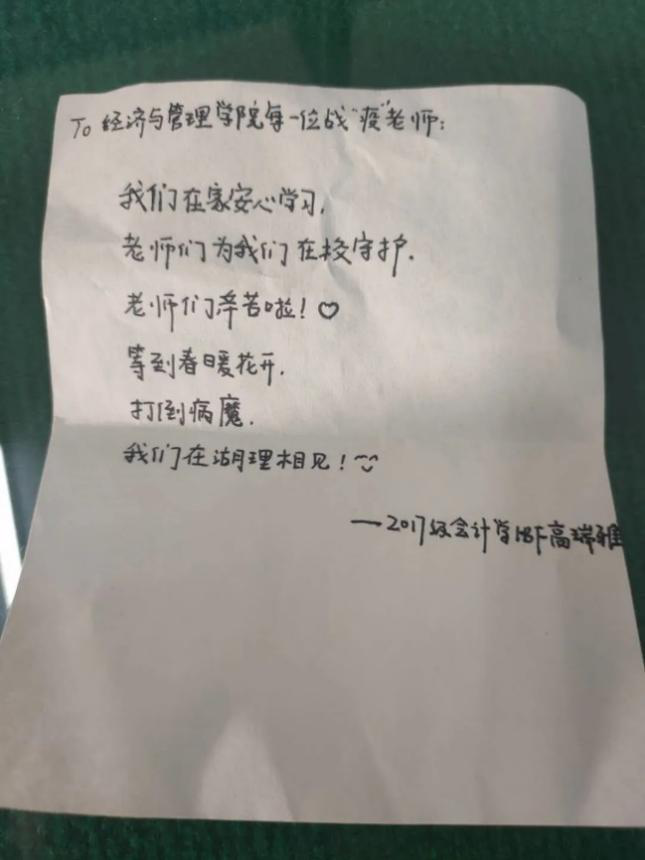 To 经济与管理学院每一位战“疫”老师:
我们在家安心学习.
老师们为我们在校守护.
老师们辛苦啦!♡
等到春暖花开.
打倒病魔.
我们在湖理相见!
—2017级会计学HBF高瑞雅